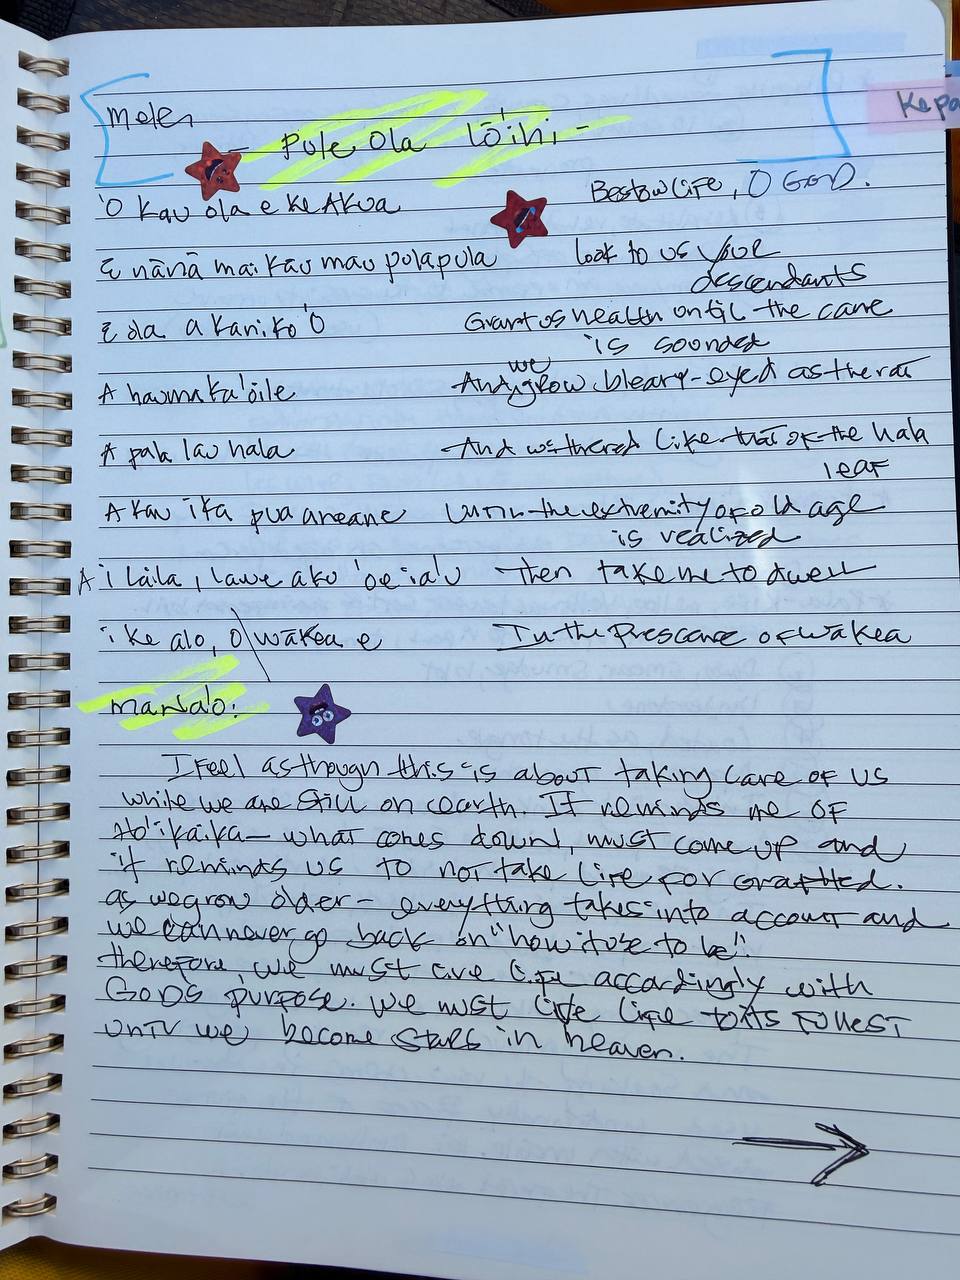 Mele,
- Pule Ola Lōʻihi -
Kepa
ʻO Kau ola e Ke Akua Bestow life, O GOD.
E nānā mai Kāu mau pulapula Look to us your
descendants
E ola a Kanikoʻo Grant us health until the cane
is sounded
A haumakaʻōile And we grow bleary-eyed as the rat
A pala lau hala And withered like that of the hala
leaf
A Kau i Ka pua aneane Until the extremity of old age
is realized
A i Laila, lawe aku ʻoe iaʻu then take me to dwell
i Ke alo, O Wākea e In the Prescence of Wākea
Manaʻo:
I Feel as though this is about taking care of us
while we are still on earth. It reminds me of
Hoʻikaika - what comes down, must come up and
it reminds us to not take life for granted.
as we grow older - everything takes into account and
we can never go back on "how it use to be".
therefore, we must live life accordingly with
GODS purpose. We must live life to its FULLEST
until we become stars in heaven.